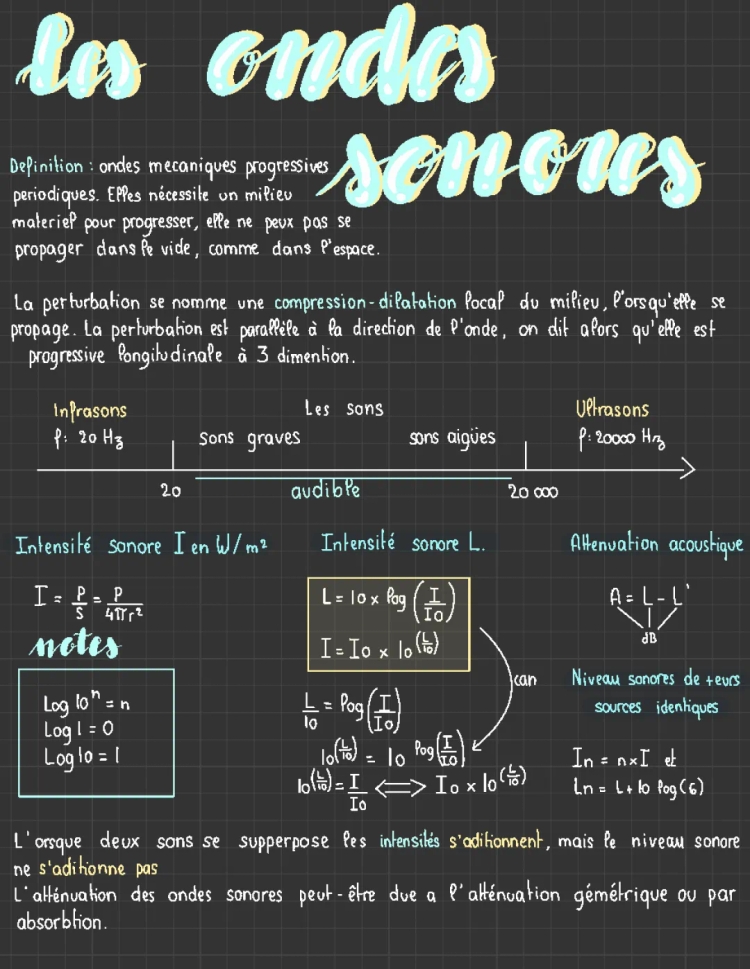 les ondes
sonores
Definition : ondes mecaniques progressives
periodiques. Elles nécessite un milieu
materiel pour progresser, elle ne peux pas se
propager dans le vide, comme dans l'espace.
La perturbation se nomme une compression-dilatation local du milieu, l'orsqu'elle se
propage. La perturbation est parallèle à la direction de l'onde, on dit alors qu'elle est
progressive longitudinale à 3 dimention.
Infrasons Les sons Ultrasons
f: 20 Hz sons graves sons aigües f: 20000 Hz
20 audible 20 000
Intensité sonore I en W/m² Intensité sonore L. Attenuation acoustique
I = P/S = P/4πr²
notes
Log 10ⁿ = n
Log 1 = 0
Log 10 = 1
L = 10 × log (I/I0)
I = I0 × 10^(L/10)
can
L/10 = log (I/I0)
10^(L/10) = 10^log(I/I0)
10^(L/10) = I/I0 ⟺ I0 × 10^(L/10)
A = L - L'
dB
Niveau sonores de +eurs
sources identiques
In = n×I et
Ln = L+10 log(6)
L'orsque deux sons se supperpose les intensités s'aditionnent, mais le niveau sonore
ne s'aditionne pas
L'atténuation des ondes sonores peut-être due a l'atténuation gémétrique ou par
absorbtion.